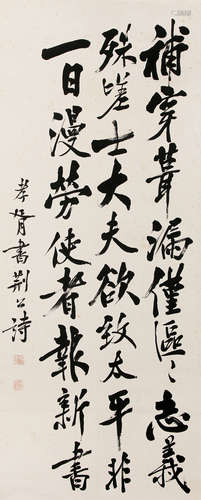 補穿葺漏僅區〻志義
殊嗟士大夫欲致太平非
一日漫勞使者報新書
孝胥書荊公詩